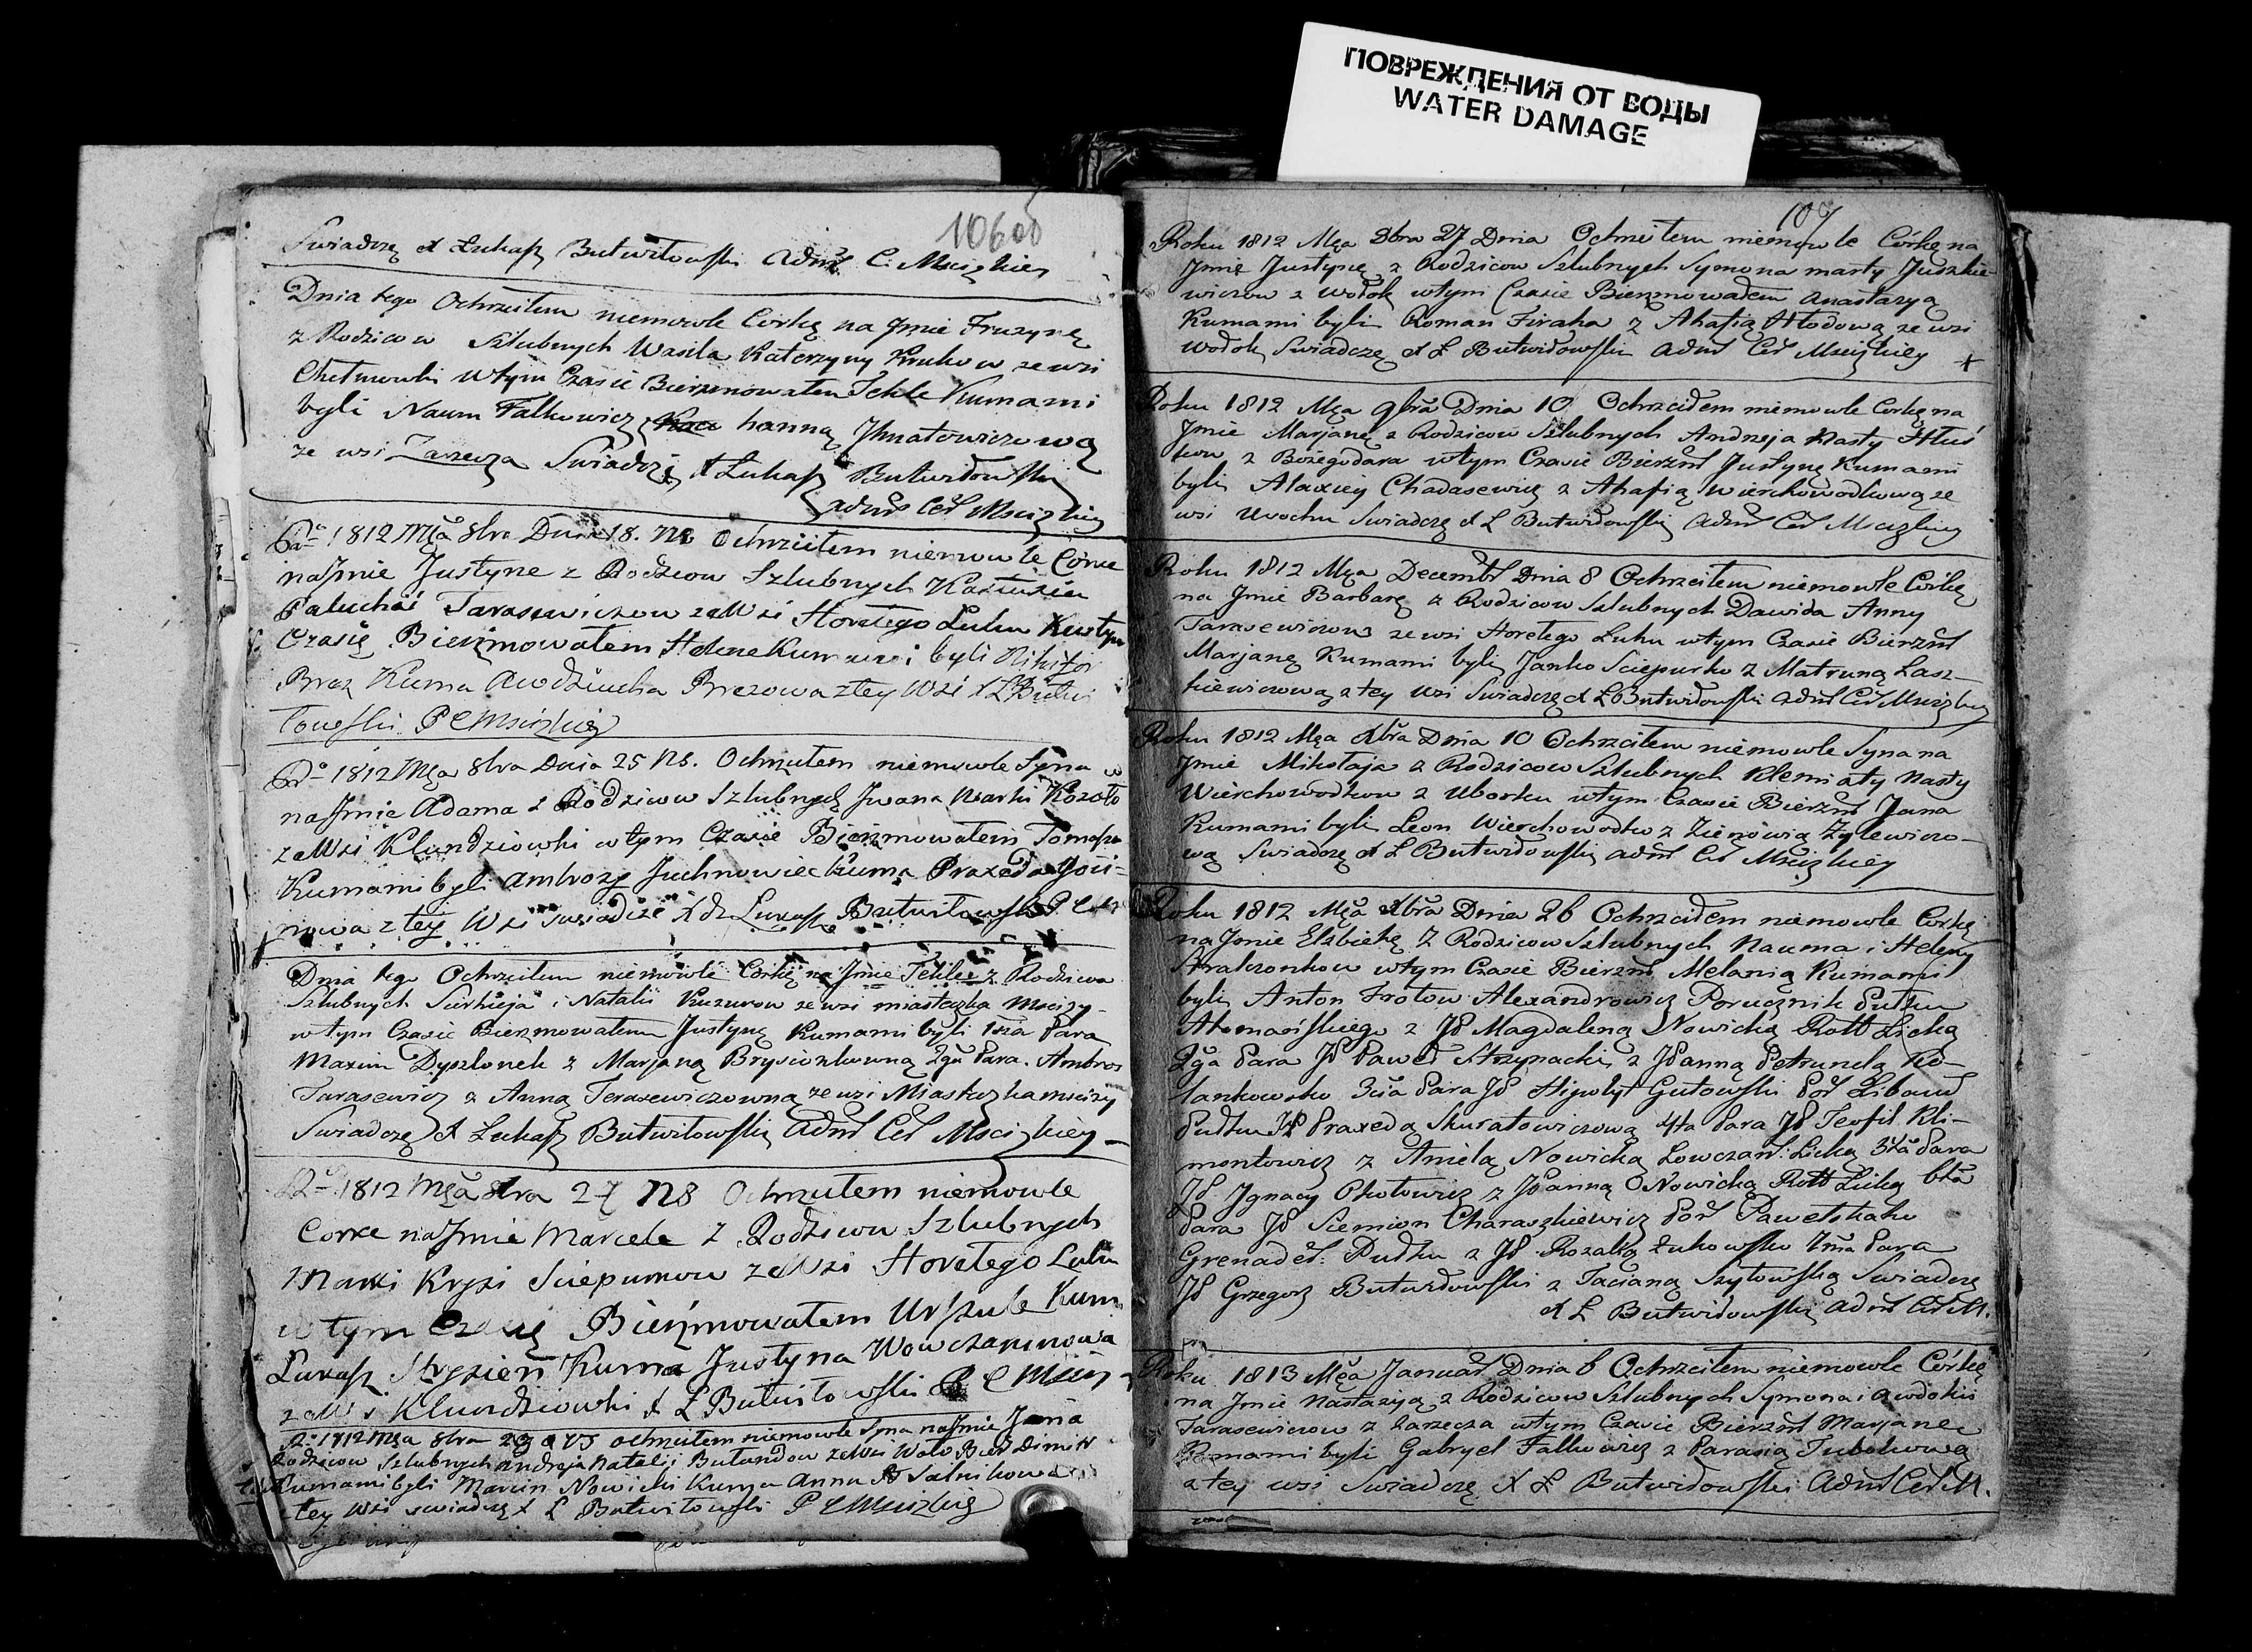 ПОВРЕЖДЕНИЯ ОТ ВОДЫ
WATER DAMAGE
10600
Swiadczę X Łukasz Butwiłowski Adm. C. Mscizkiey
Dnia tego Ochrzciłem niemowle Córkę na Jmie Fruzynę
z Rodziców Szlubnych Wasila Katerzyny Krukow ze wsi
Chełmowki wtym Czasie Bierzmowałem Tekle Kumami
byli Naum Falkowicz hanną Jhnatowiczową
ze wsi Zarzecza Swiadczę X Łukasz Butwidowski
Adm Cer Mscizkiey
1812 Mca 8bra Dnia 18. NS Ochrzciłem niemowle Corke
na Jmie Justyne z Rodzicow Szlubnych
Tarasewiczow ze Wsi Horełego Luhu wtym
Czasię Bierzmowałem Helene Kumami byli Nikifor
Kuma Awdziucha z tey Wsi X Ł Butwi
łowski P C Mscizkiey
1812 Mca 8bra Dnia 25 NS. Ochrzciłem niemowle Syna
na Jmie Adama z Rodzicow Szlubnych Jwana
ze Wsi Klundziowki wtym Czasie Bierzmowałem Tomasza
Kumami byli Ambrozy Juchnowiec Kuma Praxeda
nowa z tey Wsi swiadcze X Łukasz Butwiłowski P C M
Dnia tego Ochrzciłem niemowle Córkę na Jmie Teklę z Rodzicow
Szlubnych Serhieja i Natalii ze wsi miasteczka Mscizy
wtym Czasie Bierzmowałem Justynę Kumami byli 1sza Para
Maxim Dyszlonek z Marjaną 2ga Para. Ambros
Tarasewicz z Anną Terasewiczowną ze wsi Miasteczka mscizy
Swiadczę X Łukasz Butwiłowski Adm Cer Mscizkiey
1812 Mca 8bra 27 NS Ochrzciłem niemowle
Corke na Jmie Marcele z Rodzicow Szlubnych
Marki Kryzi Sciepurow ze Wsi Horełego Luhu
wtym Czasię Bierzmowałem Urszule Kum
Łukasz Kuma Justyna
ze Wsi Klundziowki X Ł Butwiłowski P C Mscizkiey
1812 Mca 8bra 29 VS ochrzciłem niemowle Syna na Jmie Jana
Rodzicow Szlubnych Andreja Natalii ze Wsi
Kumami byli Marcin Nowicki Kuma Anna
tey Wsi swiadczę X Ł Butwiłowski P C Mscizkiey
107
Roku 1812 Mca 8bra 27 Dnia Ochrzciłem niemowle Córkę na
Jmię Justynę z Rodzicow Szlubnych Symona marty Juszkie-
wiczow z Wołok wtym Czasie Bierzmowałem Anastazyą
Kumami byli Roman Firaha z Ahafią Hłodową ze wsi
Wołok Swiadczę X Ł Butwidowski Adm Cer Mscizkiey
Roku 1812 Mca 9bra Dnia 10 Ochrzciłem niemowle Corkę na
Jmie Marjanę z Rodzicow Szlubnych Andrzeja Nasty Hłuś
kow z Bożegodara wtym Czasie Bierzm Justynę Kumami
byli Alaxiey Chadasewicz z Ahafią Wierchowodkową ze
wsi Uwochu Swiadczę X Ł Butwidowski Adm Cer Mscizkiey
Roku 1812 Mca Decembr Dnia 8 Ochrzciłem niemowle Córkę
na Jmie Barbarę z Rodzicow Szlubnych Dawida Anny
Tarasewiczow ze wsi Horełego Łuhu wtym Czasie Bierzm
Marjanę Kumami byli Janko Sciepurko z Matruną Łasz-
kiewiczową z tey wsi Swiadczę X Ł Butwidowski Adm Cer Mscizkiey
Roku 1812 Mca Xbra Dnia 10 Ochrzciłem niemowle Syna na
Jmie Mikołaja z Rodzicow Szlubnych Klemiaty Nasty
Wierchowodkow z Uborku wtym Czasie Bierzm Jana
Kumami byli Leon Wierchowodko z Zienowią Zylewiczo-
wą Swiadczę X Ł Butwidowski Adm Cer Mscizkiey
Roku 1812 Mca Xbra Dnia 26 Ochrzciłem niemowle Córkę
na Jmie Elzbietę z Rodzicow Szlubnych Nauma i Heleny
wtym Czasie Bierzm Melanią Kumami
byli Anton Alexandrowicz Porucznik Pułku
Atamańskiego z JP Magdaleną Nowicką Rott
2ga Para JP Paweł z JPanną Petrunelą Ko-
łankowsko 3cia Para JP Hipolyt Gutowski Por
Pułku JP Praxedą Skuratowiczową 4ta Para JP Teofil Kli-
montowicz z Anielą Nowicką Para
JP Jgnacy z JPanną Nowicką Rott 6ta
Para JP Siemion Charaszkiewicz Por Pawełskaho
Grenader: Pułku z JP Rozalią Zukowsko 7ma Para
JP Grzegorz Butwidowski z Tacianą Szytowską Swiadczę
X Ł Butwidowski Adm Cer M.
Roku 1813 Mca Januar Dnia 6 Ochrzciłem niemowle Córkę
na Jmie Nastazyą z Rodzicow Szlubnych Symona i Awdokii
Tarasewiczow z Zarzecza wtym Czasie Bierzm Marjanę
Kumami byli Gabryel Falkowicz z Parasią
z tey wsi Swiadczę X Ł Butwidowski Adm Cer M.